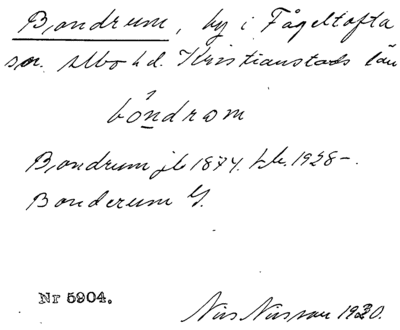 Bondrum, by i Fågeltofta
sn. Albo hd. Kristianstads län
bóndrom
Bondrum jb 1874. hb. 1928-.
Bonderum G.
Nr 5904.
Nils Nilsson 1930.